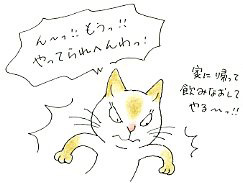 ん〜っ!! もうっ!!
やってられへんわっ!
家に帰って
飲みなおして
やる〜っ!!